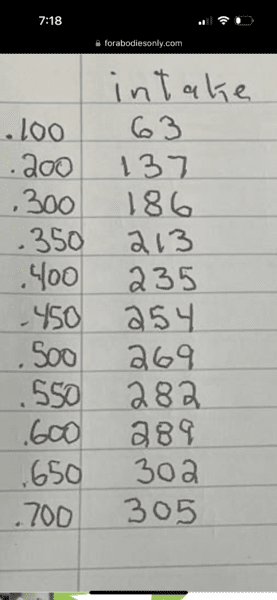 7:18
forabodiesonly.com
intake
.100 63
.200 137
.300 186
.350 213
.400 235
.450 254
.500 269
.550 282
.600 289
.650 302
.700 305